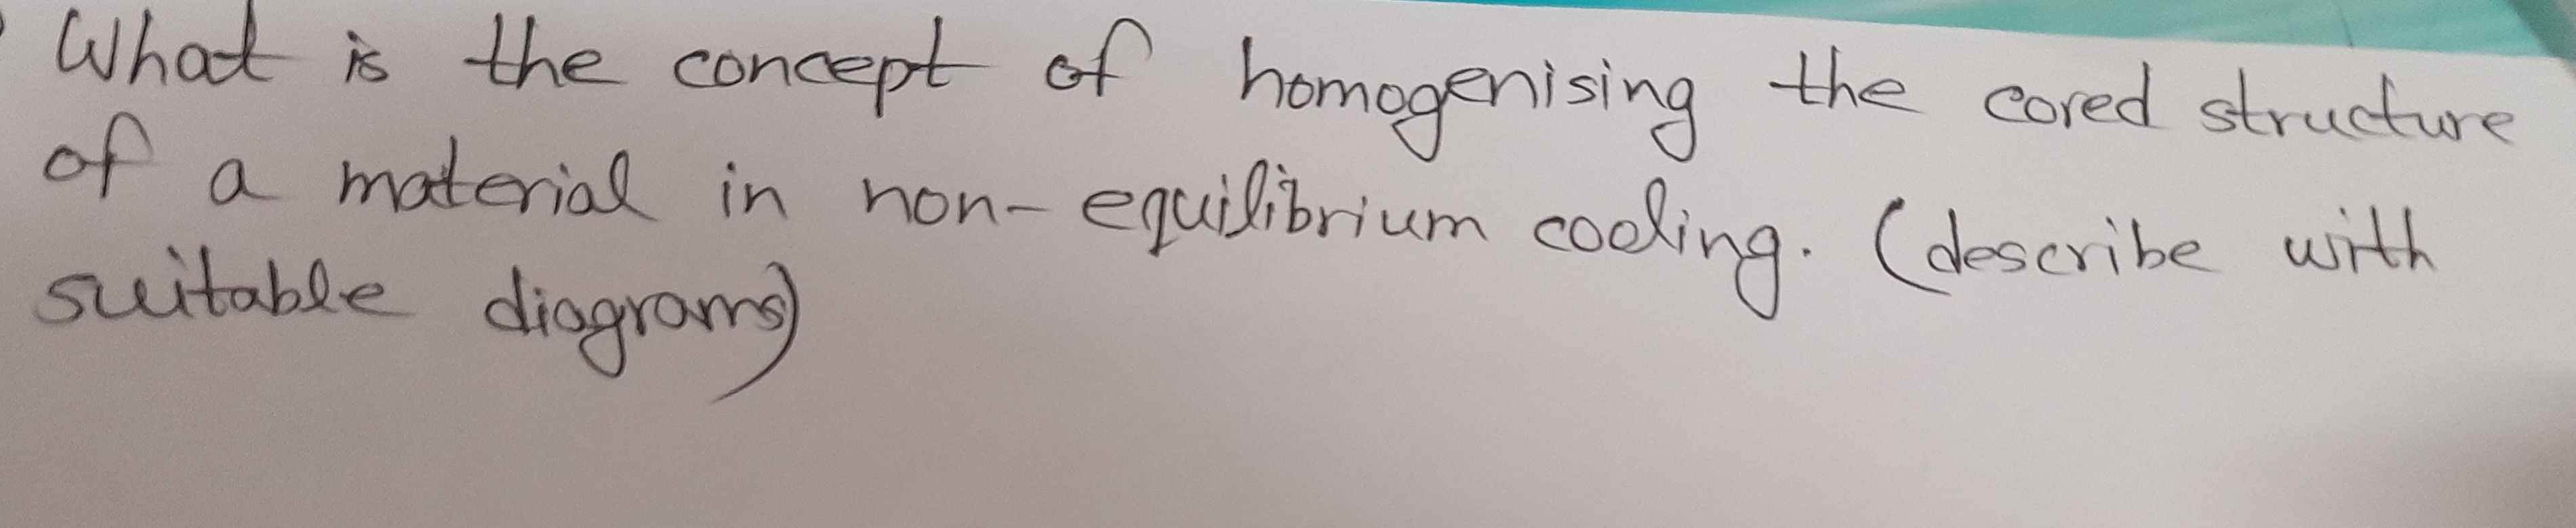 What is the concept of homogenising the cored structure
of a material in non-equilibrium cooling. (describe with
suitable diagrams)